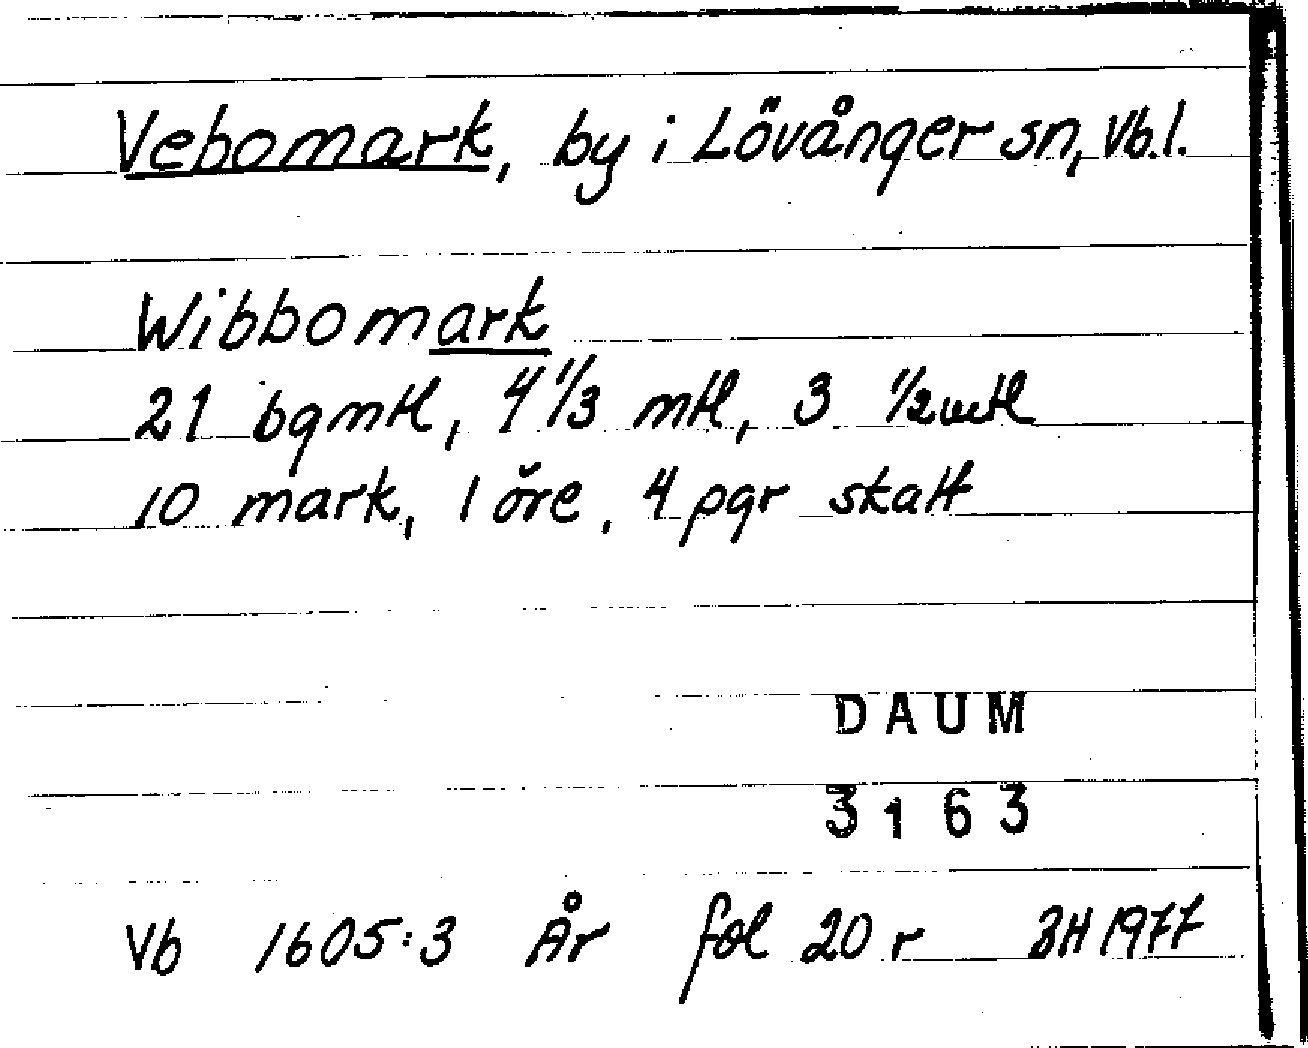 Vebomark, by i Lövånger sn, Vb.l.
Wibbomark
21 bgmtl, 4 1/3 mtl, 3 1/2 mtl
10 mark, 1 öre, 4 pgr skatt
DAUM
3163
Vb 1605:3 År fol 20 r BH 1977